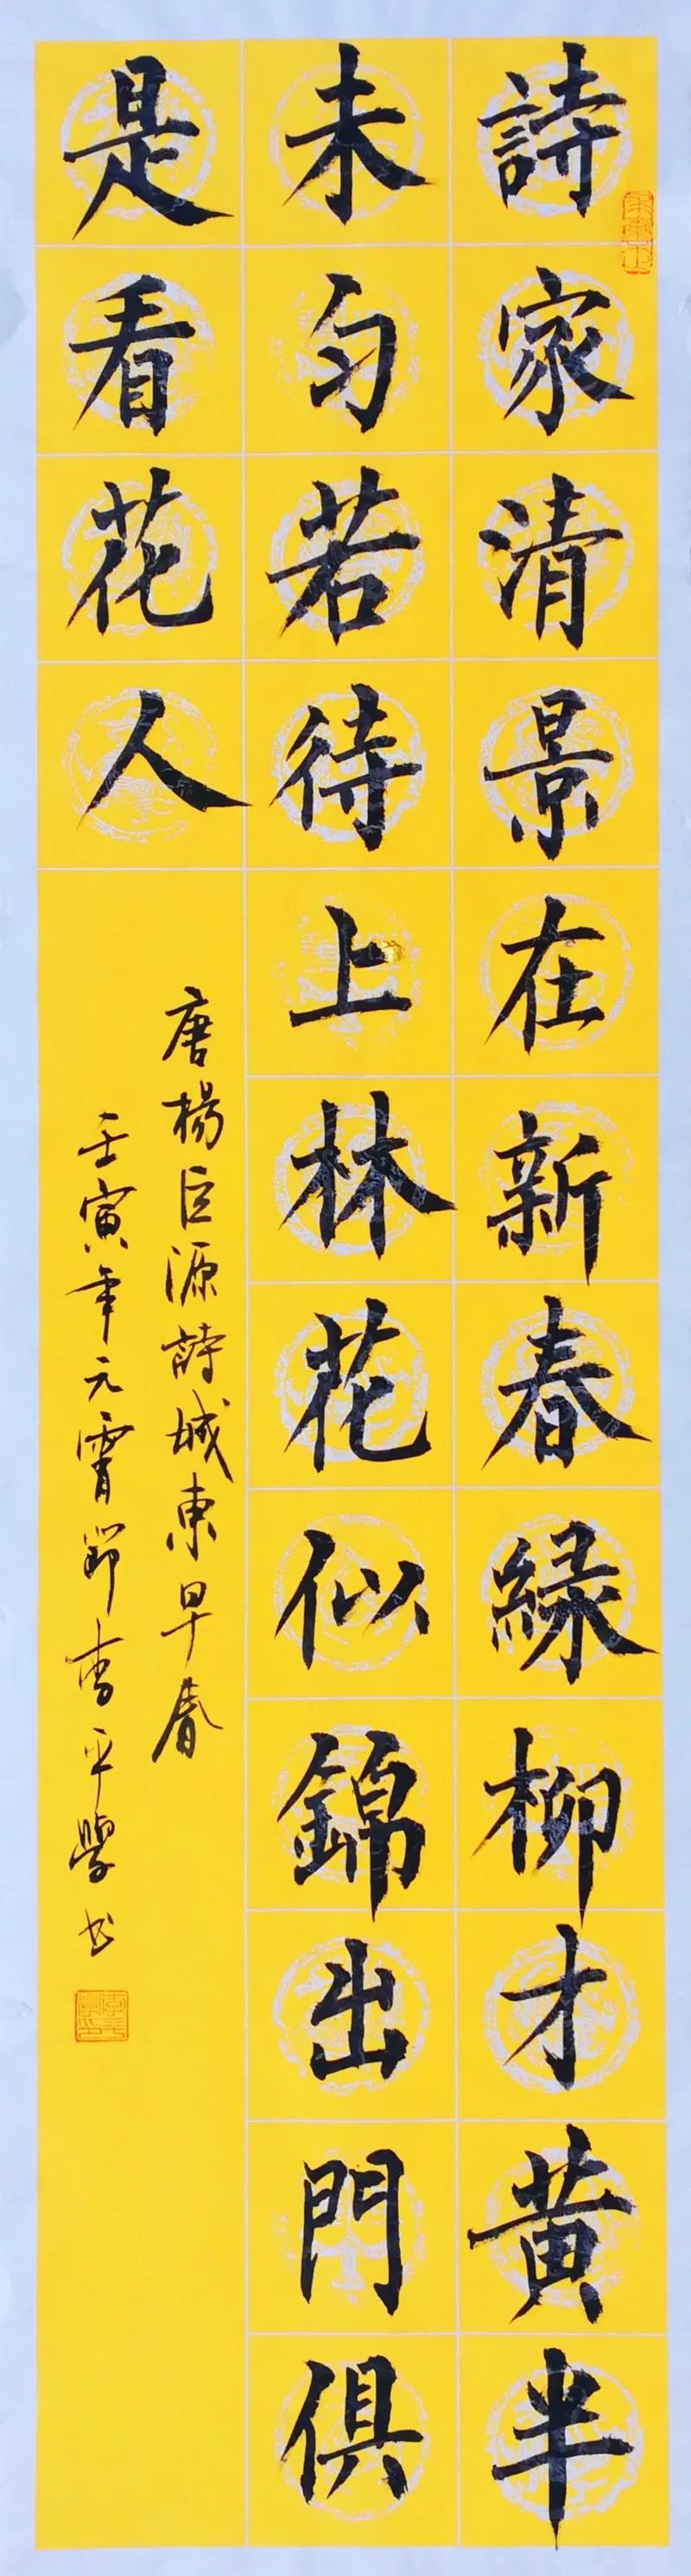 詩家清景在新春緑柳才黄半
未匀若待上林花似錦出門俱
是看花人
唐楊巨源詩城東早春
壬寅年元宵節李平學书